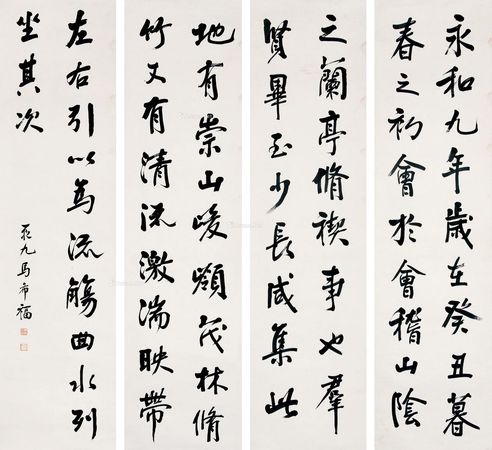 永和九年歲在癸丑暮
春之初會於會稽山陰
之蘭亭脩禊事也羣
賢畢至少長咸集此
地有崇山峻嶺茂林脩
竹又有清流激湍映帶
左右引以為流觴曲水列
坐其次
九馬福